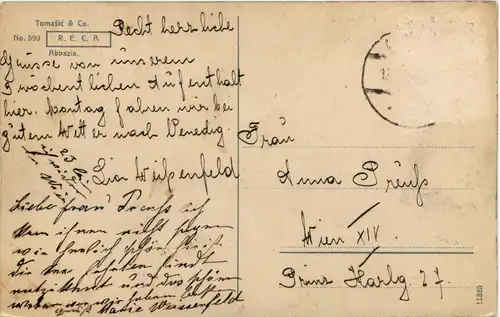 Tomašić & Co.
No. 590 R. E. C. A.
Abbazia.
Recht herzliche
Grüsse von unserem
3 wöchentlichen Aufenthalt
hier. Montag fahren wir bei
gutem Wetter nach Venedig.
Lia Weißenfeld
Liebe Frau Preuss ich
kann ihnen nicht sagen
wie herlich schön
die
und das schöne
wir haben
Marie Weissenfeld
Frau
Anna Preuß
Wien XIV.
Prinz Karlg. 27.
11395